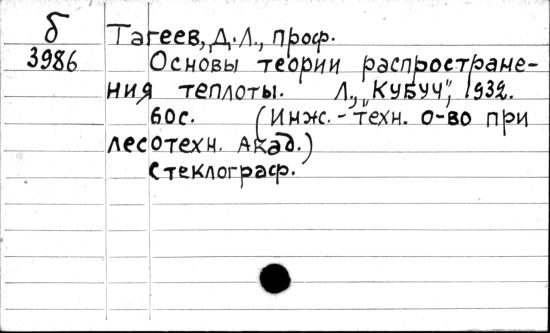 б
3986
Тагеев, Д.Л., проф.
Основы теории распростране-
ния теплоты. Л., "КУБУЧ", 1932.
60с. (Инж.-техн. о-во при
лесотехн. Акад.)
Стеклограф.